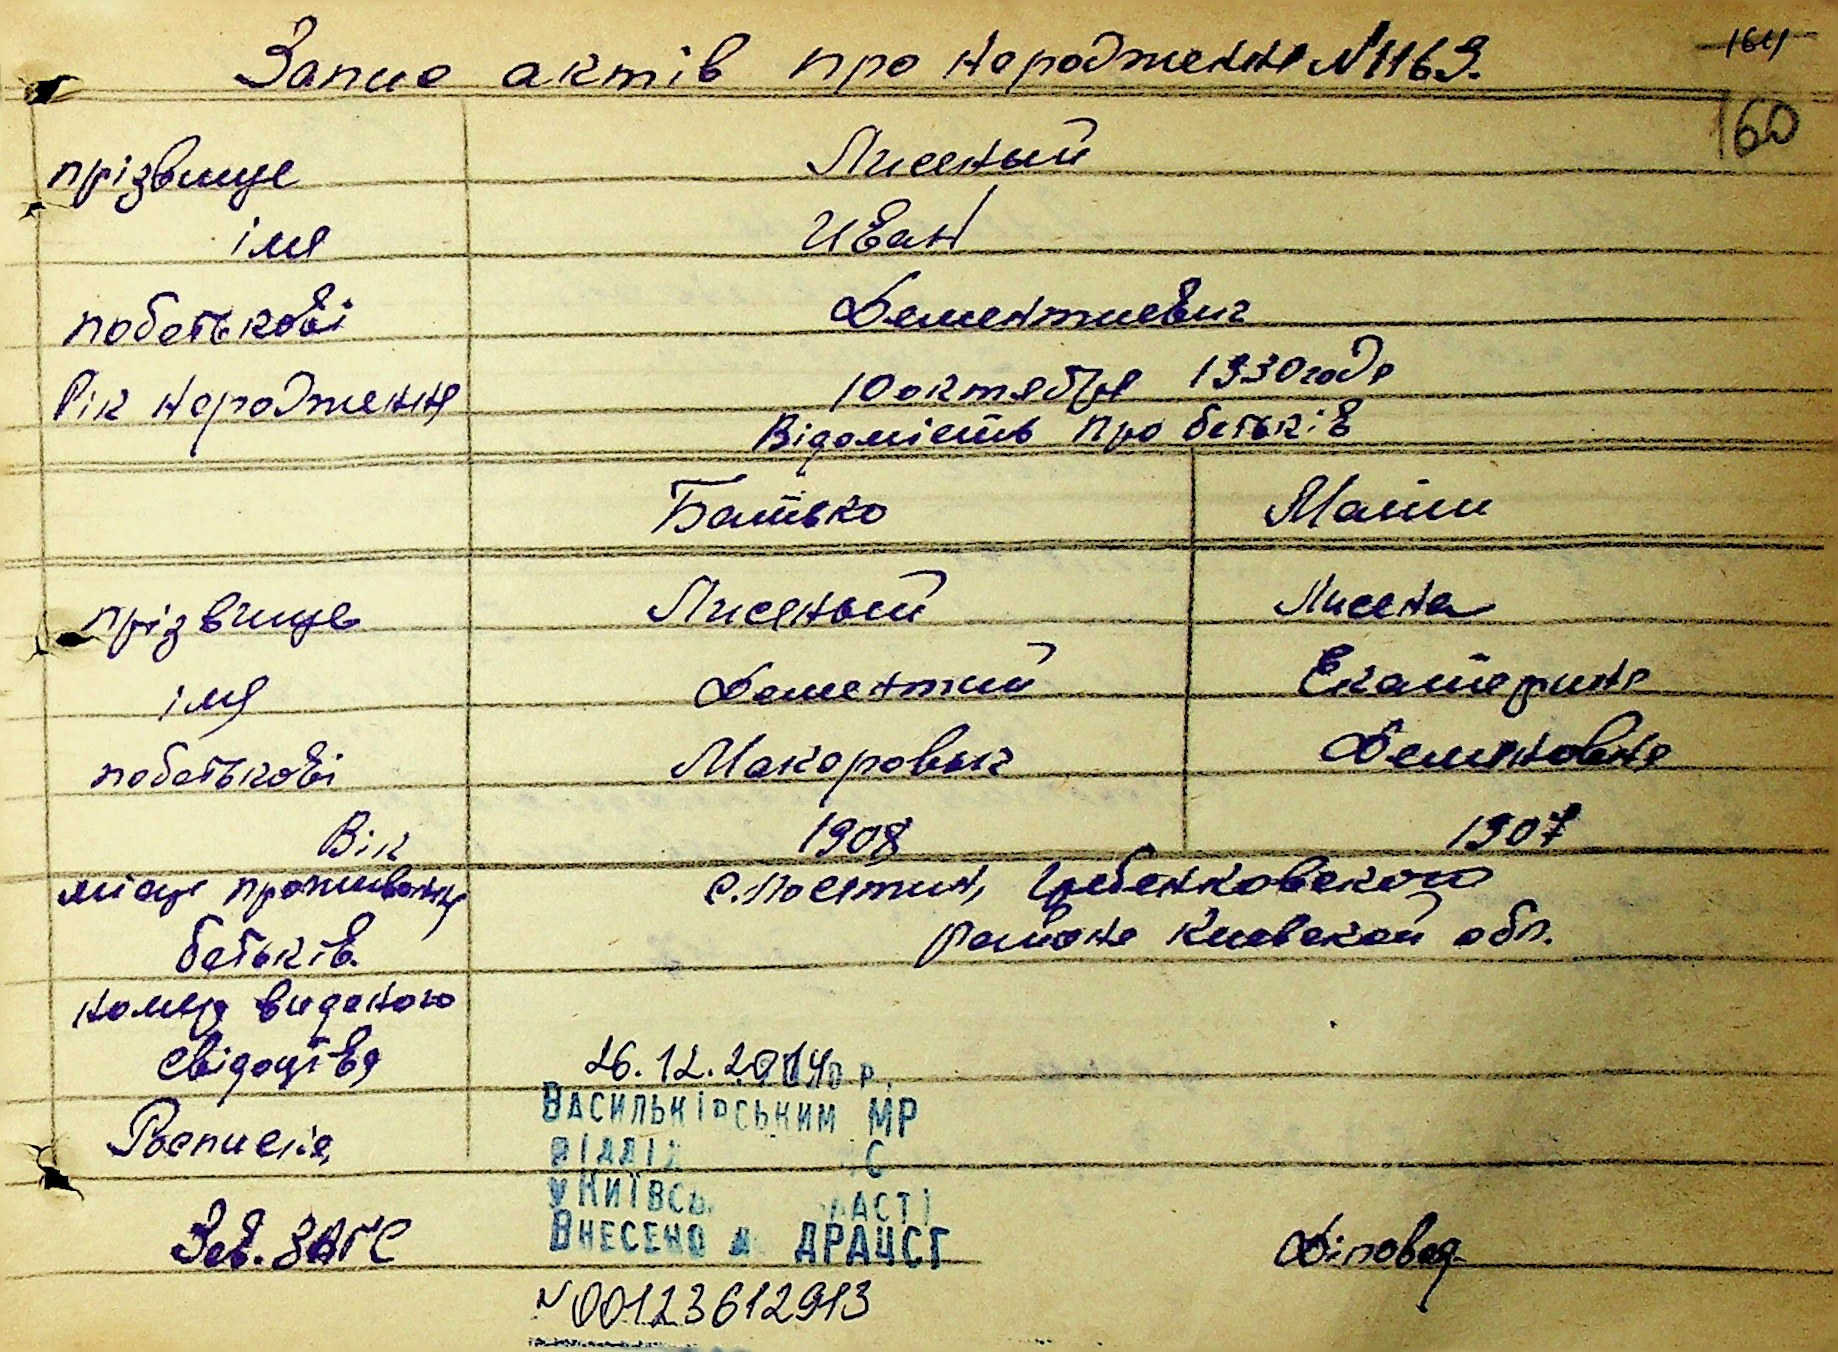 Запис актів про народження №1169.
164
160
прізвище Лисеный
імя Иван
побатькові Дементиевич
Рік народження 10 октября 1930 года
Відомість про батьків
Батько Мати
прізвище Лисеный Лисена
імя Дементий Екатерина
побатькові Макарович Демяновна
Вік 1908 1907
місце проживання с. Посетин, Гребенковского
батьків района Киевской обл.
номер виданого
свідоцтва 26.12.2014 р.
ВАСИЛЬКІВСЬКИМ МР
Росписка
У КИЇВСЬ АСТІ
ВНЕСЕНО ДРАЦСГ
Зав. ЗАГС Діповед
N 00123612913